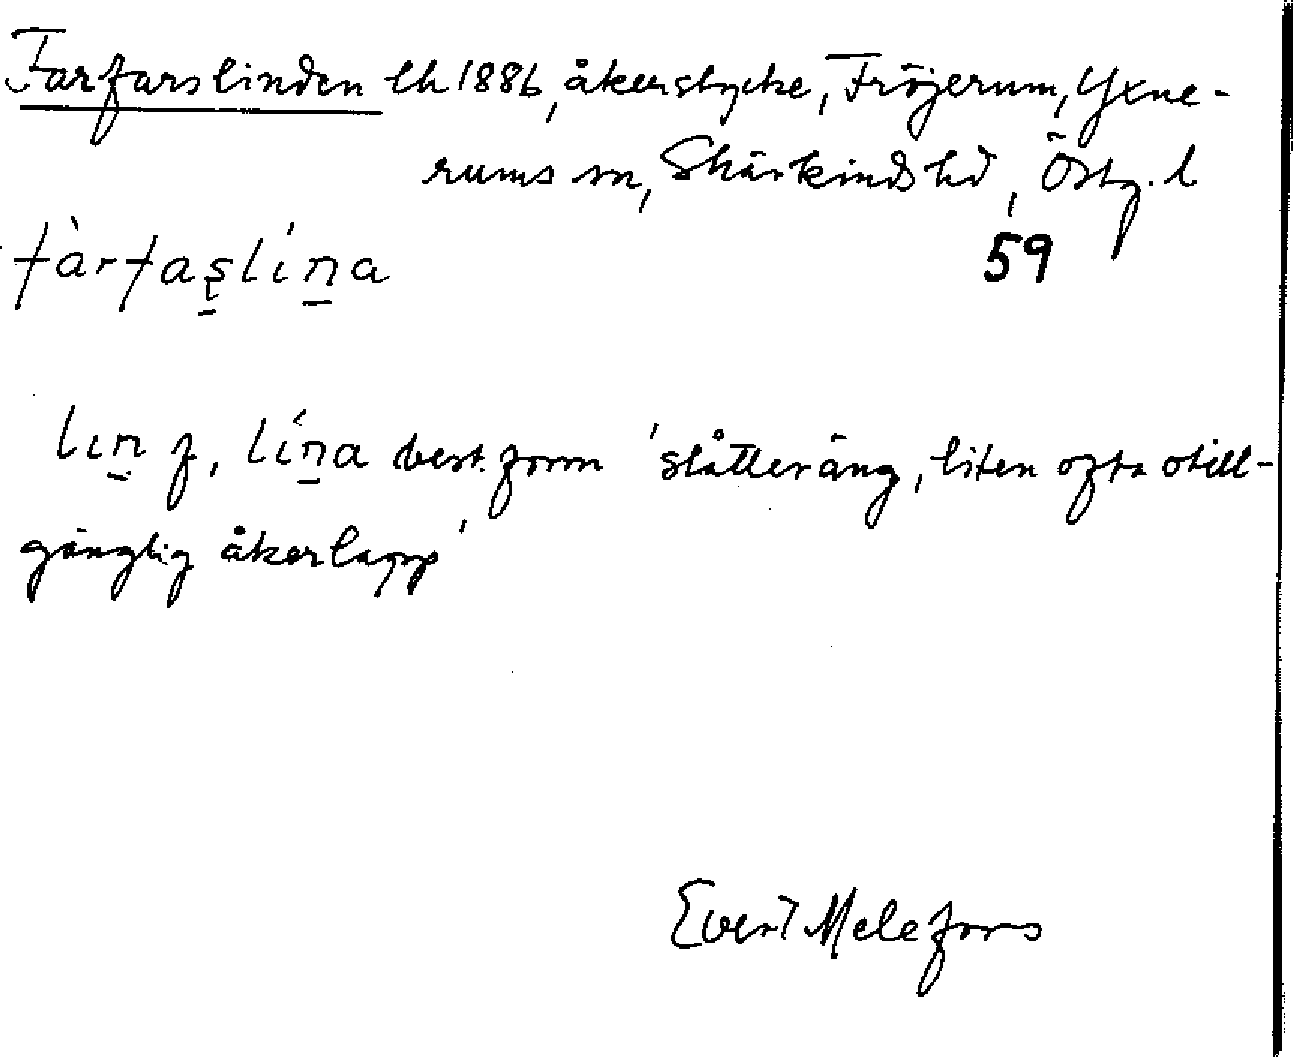 Farfarslinden lh 1886, åkerstycke, Fröjerum, Yxne-
rums sn, Skärkinds hd, Östg. l
59
fàrfaʂlíṉa
lıṉ f, líṉa best. form 'slåtteräng, liten ofta otill-
gänglig åkerlapp'
Evert Melefors